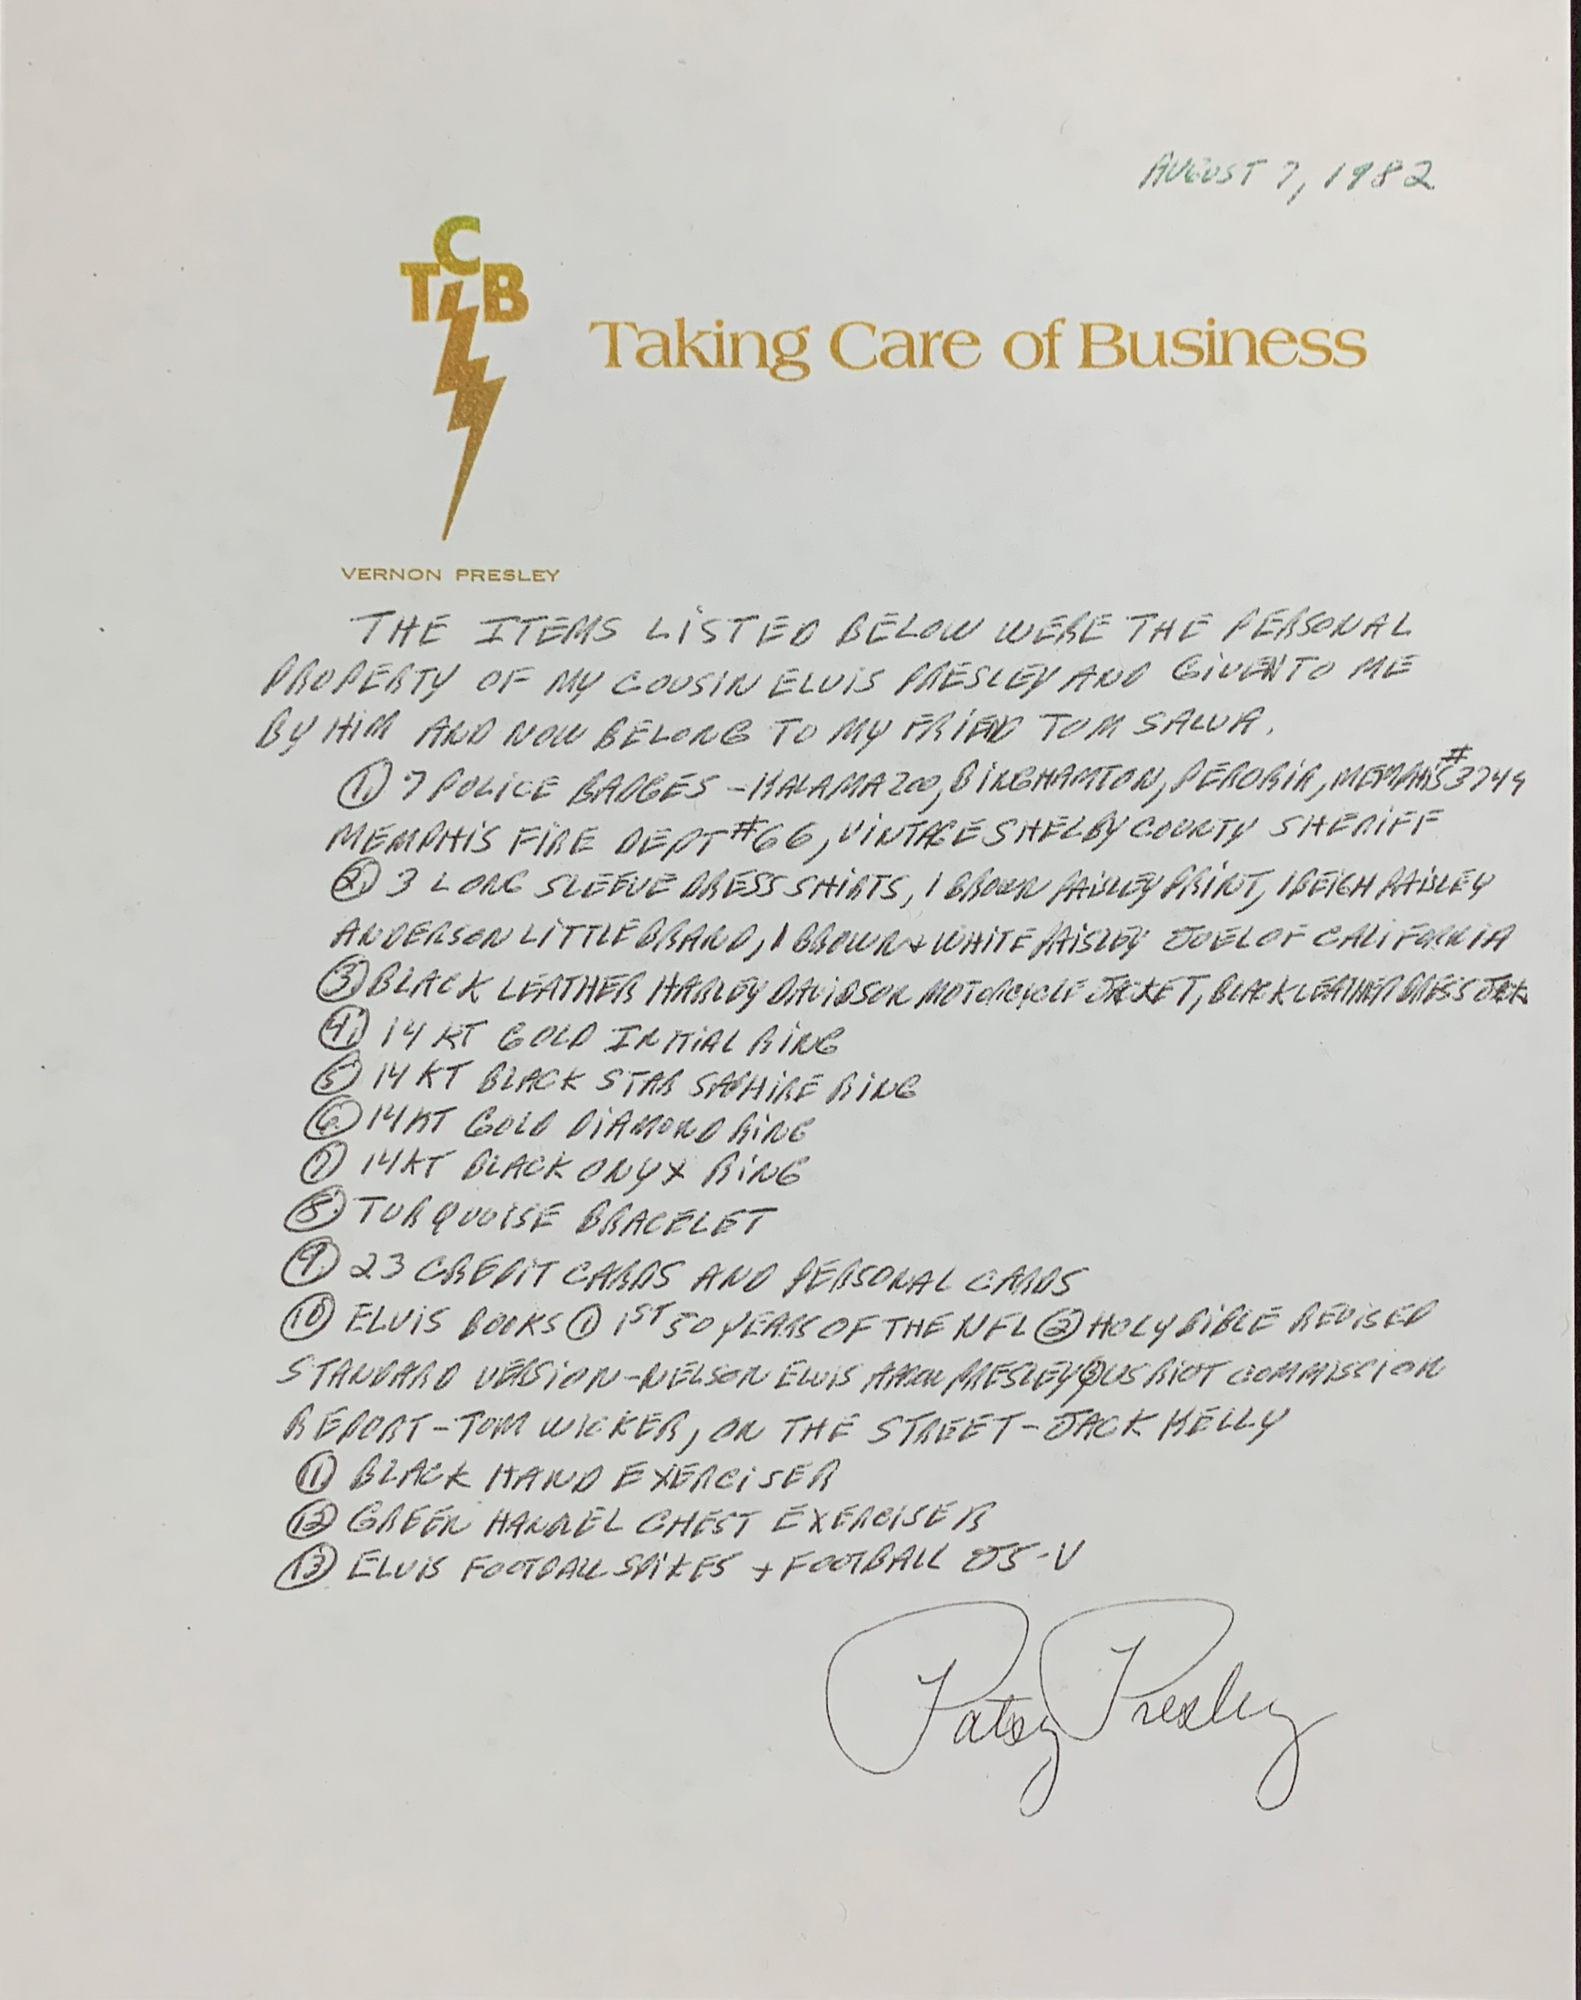 AUGUST 7, 1982
TCB
Taking Care of Business
VERNON PRESLEY
THE ITEMS LISTED BELOW WERE THE PERSONAL
PROPERTY OF MY COUSIN ELVIS PRESLEY AND GIVEN TO ME
BY HIM AND NOW BELONG TO MY FRIEND TOM SALVA.
1. 7 POLICE BADGES - KALAMAZOO, BINGHAMTON, PERORIA, MEMPHIS #3749
MEMPHIS FIRE DEPT #66, VINTAGE SHELBY COUNTY SHERIFF
2. 3 LONG SLEEVE DRESS SHIRTS, 1 BROWN PAISLEY PRINT, 1 BEIGH PAISLEY
ANDERSON LITTLE BRAND, 1 BROWN + WHITE PAISLEY JOEL OF CALIFORNIA
3. BLACK LEATHER HARLEY DAVIDSON MOTORCYCLE JACKET, BLACK LEATHER DRESS JACK
4. 14 KT GOLD INITIAL RING
5 14 KT BLACK STAR SAPHIRE RING
6. 14 KT GOLD DIAMOND RING
7 14 KT BLACK ONYX RING
8. TURQUOISE BRACELET
9. 23 CREDIT CARDS AND PERSONAL CARDS
10 ELVIS BOOKS 1 1ST 50 YEARS OF THE NFL 2 HOLY BIBLE REVISED
STANDARD VERSION-NELSON ELVIS AARON PRESLEY 3 US RIOT COMMISSION
REPORT-TOM WICKER, ON THE STREET-JACK KELLY
11 BLACK HAND EXERCISER
12 GREEN HANDEL CHEST EXERCISER
13 ELVIS FOOTBALL SPIKES + FOOTBALL J5-V
Patsy Presley